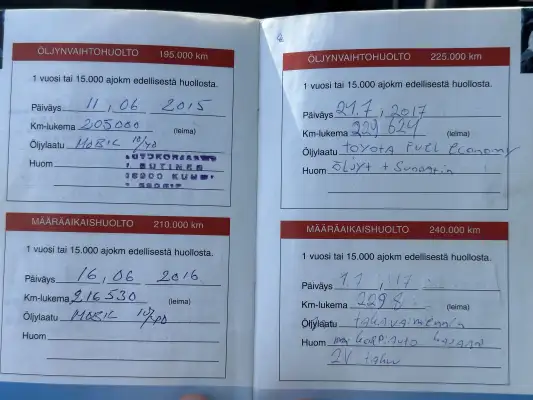 ÖLJYNVAIHTOHUOLTO 195.000 km
1 vuosi tai 15.000 ajokm edellisestä huollosta.
Päiväys 11, 06 2015
Km-lukema 205000 (leima)
Öljylaatu MOBIL 10/40
Huom
MÄÄRÄAIKAISHUOLTO 210.000 km
1 vuosi tai 15.000 ajokm edellisestä huollosta.
Päiväys 16, 06 2016
Km-lukema 216530 (leima)
Öljylaatu MOBIL 10/40
Huom
ÖLJYNVAIHTOHUOLTO 225.000 km
1 vuosi tai 15.000 ajokm edellisestä huollosta.
Päiväys 21.7, 2017
Km-lukema 229 624 (leima)
Öljylaatu toyota Fuel Economy
Huom öljyt + Suodatin
MÄÄRÄAIKAISHUOLTO 240.000 km
1 vuosi tai 15.000 ajokm edellisestä huollosta.
Päiväys 11, 17
Km-lukema 2298 (leima)
Öljylaatu
Huom